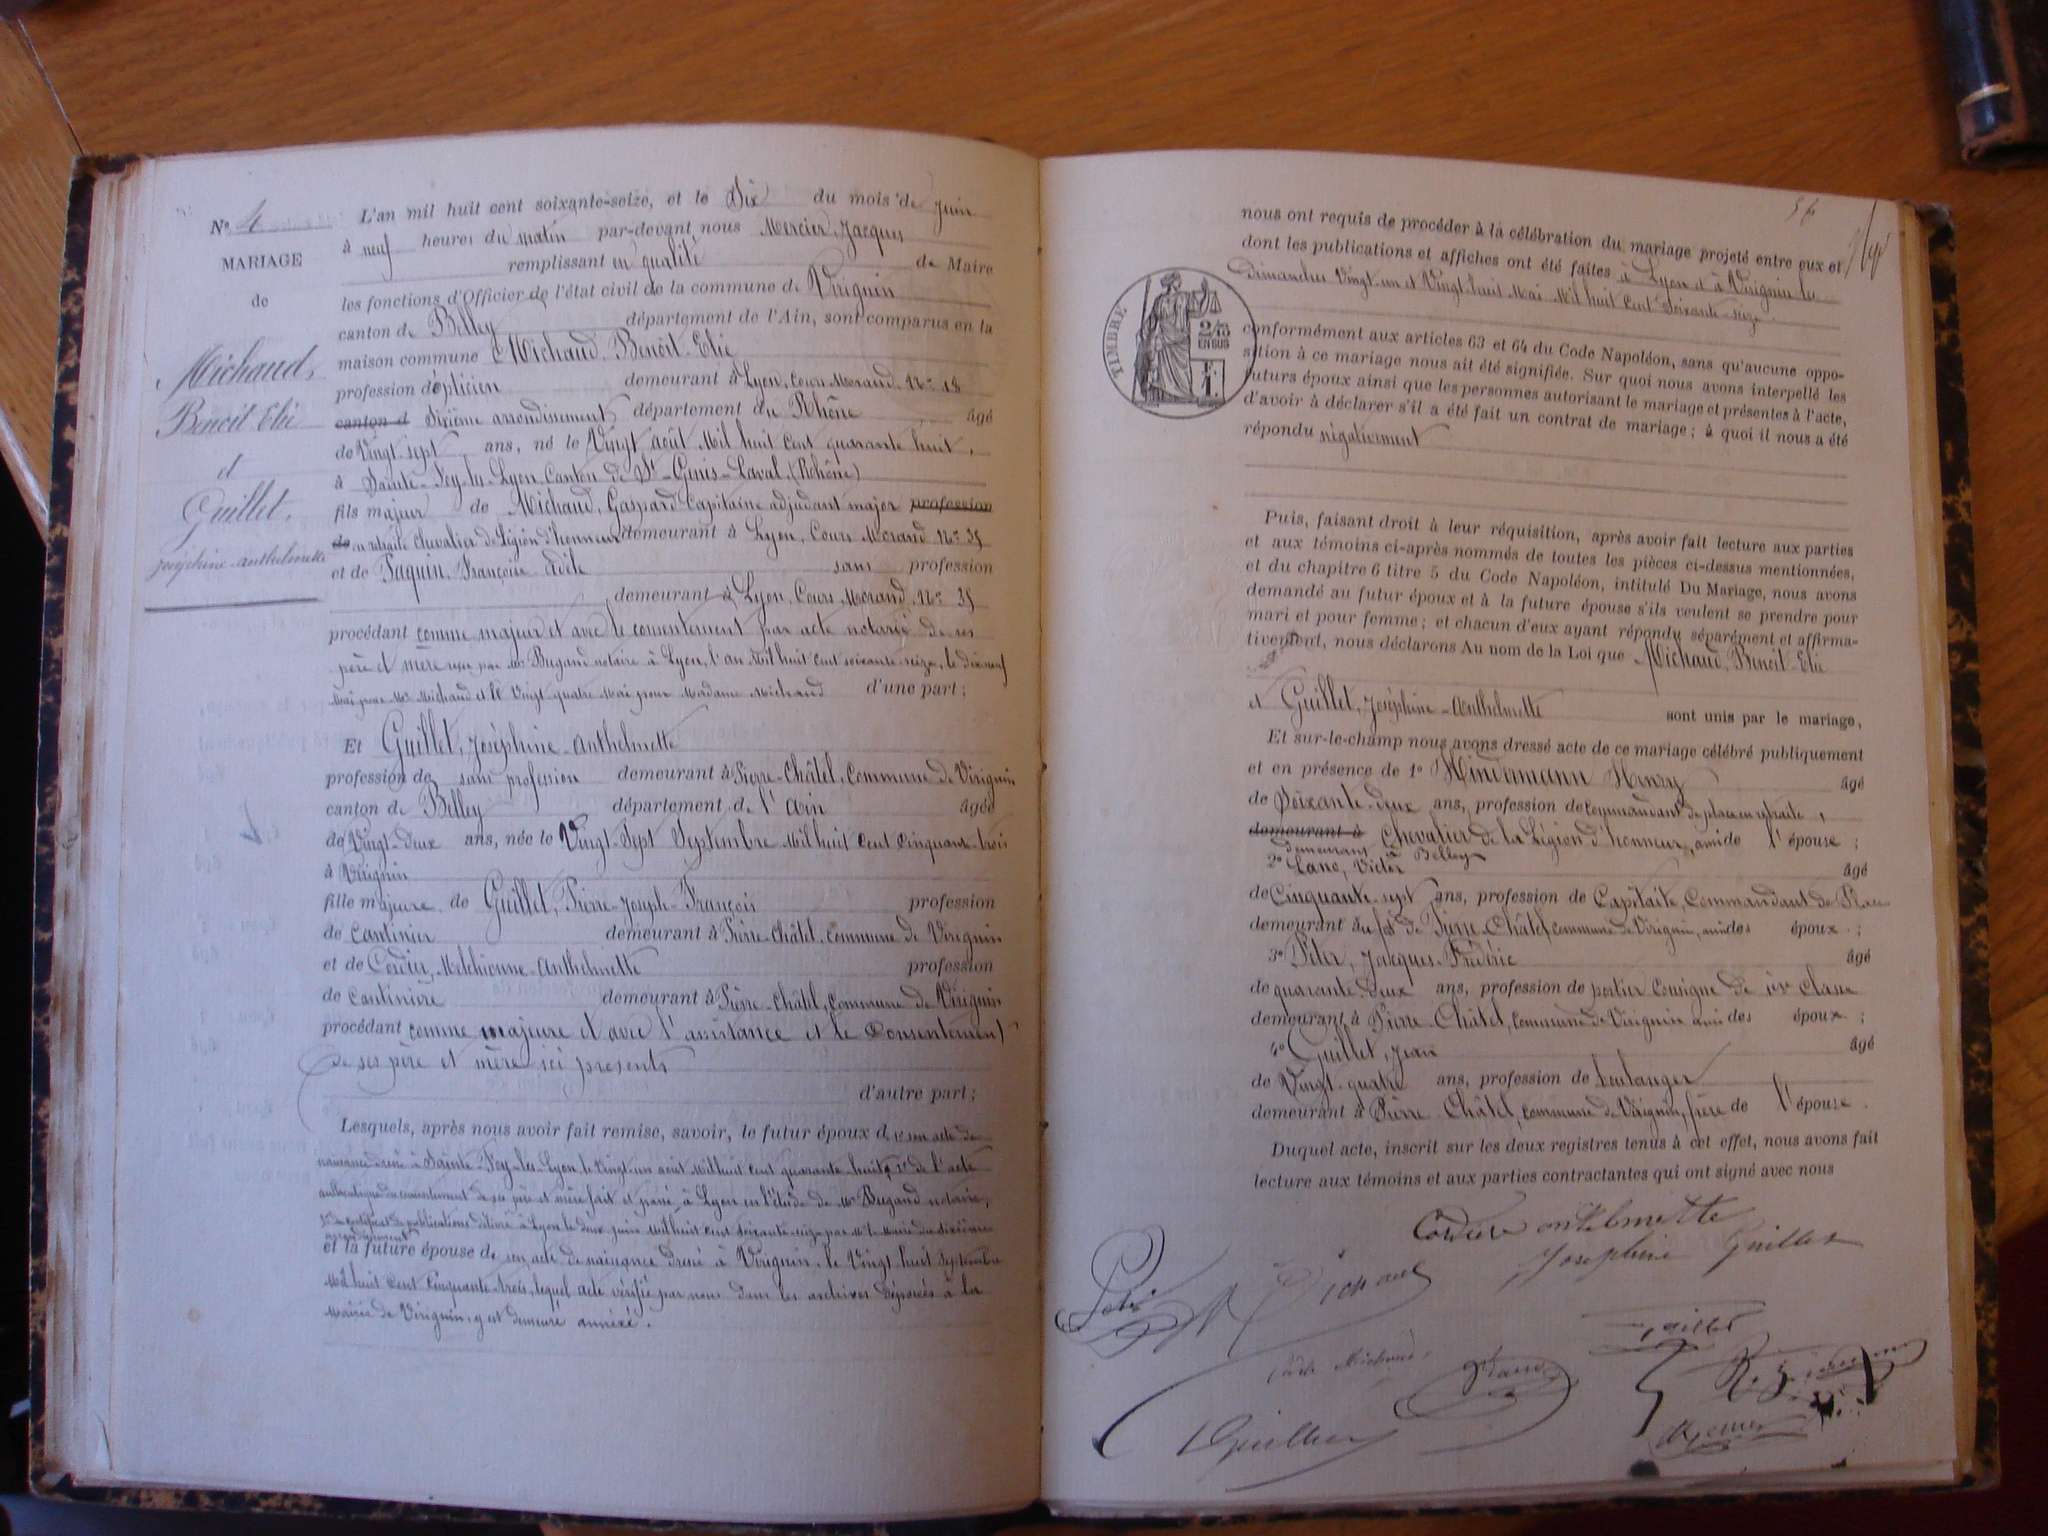 N° 4
MARIAGE
de
Michaud,
Benoit Elie
et
Guillet,
Joséphine-Anthelmette
L'an mil huit cent soixante-seize, et le Dix du mois de Juin
à neuf heures du matin par-devant nous Mercier, Jacques
remplissant en qualité de Maire
les fonctions d'Officier de l'état civil de la commune de Virignin
canton de Belley département de l'Ain, sont comparus en la
maison commune Michaud, Benoit-Elie
profession d'opticien demeurant à Lyon, Cours Morand, N° 18
canton d Sixième arrondissement département du Rhône âgé
de Vingt-sept ans, né le Vingt août Mil huit cent quarante huit,
à Sainte-Foy-lès-Lyon, Canton de St-Genis-Laval, (Rhône)
fils majeur de Michaud, Gaspard Capitaine adjudant major profession
de en retraite Chevalier de Légion d'honneur demeurant à Lyon, Cours Morand N° 35
et de Paquin, Françoise Adèle sans profession
demeurant à Lyon, Cours Morand, N° 35
procédant comme majeur et avec le consentement par acte notarié de ses
père et mère reçu par Mr Bugand notaire à Lyon, l'an Mil huit cent soixante-seize, le dix neuf
Mai pour Mr Michaud et le Vingt-quatre Mai pour Madame Michaud d'une part;
Et Guillet, Joséphine-Anthelmette
profession de sans profession demeurant à Pierre-Châtel, Commune de Virignin
canton de Belley département de l'Ain âgée
de Vingt-deux ans, née le Vingt-Sept Septembre Mil huit cent cinquante-trois
à Virignin
fille majeure de Guillet, Pierre-Joseph-François profession
de Cantinier demeurant à Pierre-Châtel, Commune de Virignin
et de Cordier, Melchionne-Anthelmette profession
de Cantinière demeurant à Pierre-Châtel, Commune de Virignin
procédant comme majeure et avec l'assistance et le Consentement
de ses père et mère ici présents
d'autre part;
Lesquels, après nous avoir fait remise, savoir, le futur époux de 1° son acte de
naissance dressé à Sainte-Foy-lès-Lyon le vingt-un août Mil huit cent quarante-huit, 2° de l'acte
authentique du consentement de ses père et mère fait et passé à Lyon en l'étude de Mr Bugand notaire,
3° de certificat de publications délivré à Lyon le deux juin Mil huit cent soixante-seize par Mr le Maire du sixième
arrondissement
et la future épouse de son acte de naissance dressé à Virignin le Vingt huit Septembre
Mil huit Cent Cinquante-trois, lequel acte vérifié par nous dans les archives déposées à la
Mairie de Virignin, y est demeuré annexé.
56
nous ont requis de procéder à la célébration du mariage projeté entre eux et
dont les publications et affiches ont été faites à Lyon et à Virignin les
Dimanches Vingt-un et Vingt-huit Mai Mil huit Cent Soixante-seize
TIMBRE
2/10
EN SUS
1F
conformément aux articles 63 et 64 du Code Napoléon, sans qu'aucune oppo-
sition à ce mariage nous ait été signifiée. Sur quoi nous avons interpellé les
futurs époux ainsi que les personnes autorisant le mariage et présentes à l'acte,
d'avoir à déclarer s'il a été fait un contrat de mariage; à quoi il nous a été
répondu négativement
Puis, faisant droit à leur réquisition, après avoir fait lecture aux parties
et aux témoins ci-après nommés de toutes les pièces ci-dessus mentionnées,
et du chapitre 6 titre 5 du Code Napoléon, intitulé Du Mariage, nous avons
demandé au futur époux et à la future épouse s'ils veulent se prendre pour
mari et pour femme; et chacun d'eux ayant répondu séparément et affirma-
tivement, nous déclarons Au nom de la Loi que Michaud, Benoit-Elie
et Guillet, Joséphine-Anthelmette sont unis par le mariage,
Et sur-le-champ nous avons dressé acte de ce mariage célébré publiquement
et en présence de 1° Hindermann Henry âgé
de Soixante-deux ans, profession de commandant de place en retraite,
demeurant à Chevalier de la Légion d'honneur, ami de l'épouse;
demeurant à Belley
2° Lanc, Victor âgé
de Cinquante-sept ans, profession de Capitaine, Commandant de Place
demeurant au fort de Pierre-Châtel, commune de Virignin, ami des époux;
3° Péter, Jacques-Frédéric âgé
de quarante-deux ans, profession de portier Consigne de 1re Classe
demeurant à Pierre-Châtel, commune de Virignin ami des époux;
4° Guillet, Jean âgé
de Vingt-quatre ans, profession de boulanger
demeurant à Pierre-Châtel, commune de Virignin, frère de l'épouse.
Duquel acte, inscrit sur les deux registres tenus à cet effet, nous avons fait
lecture aux témoins et aux parties contractantes qui ont signé avec nous
Cordier antelmette
Josephine Guillet
Guillet